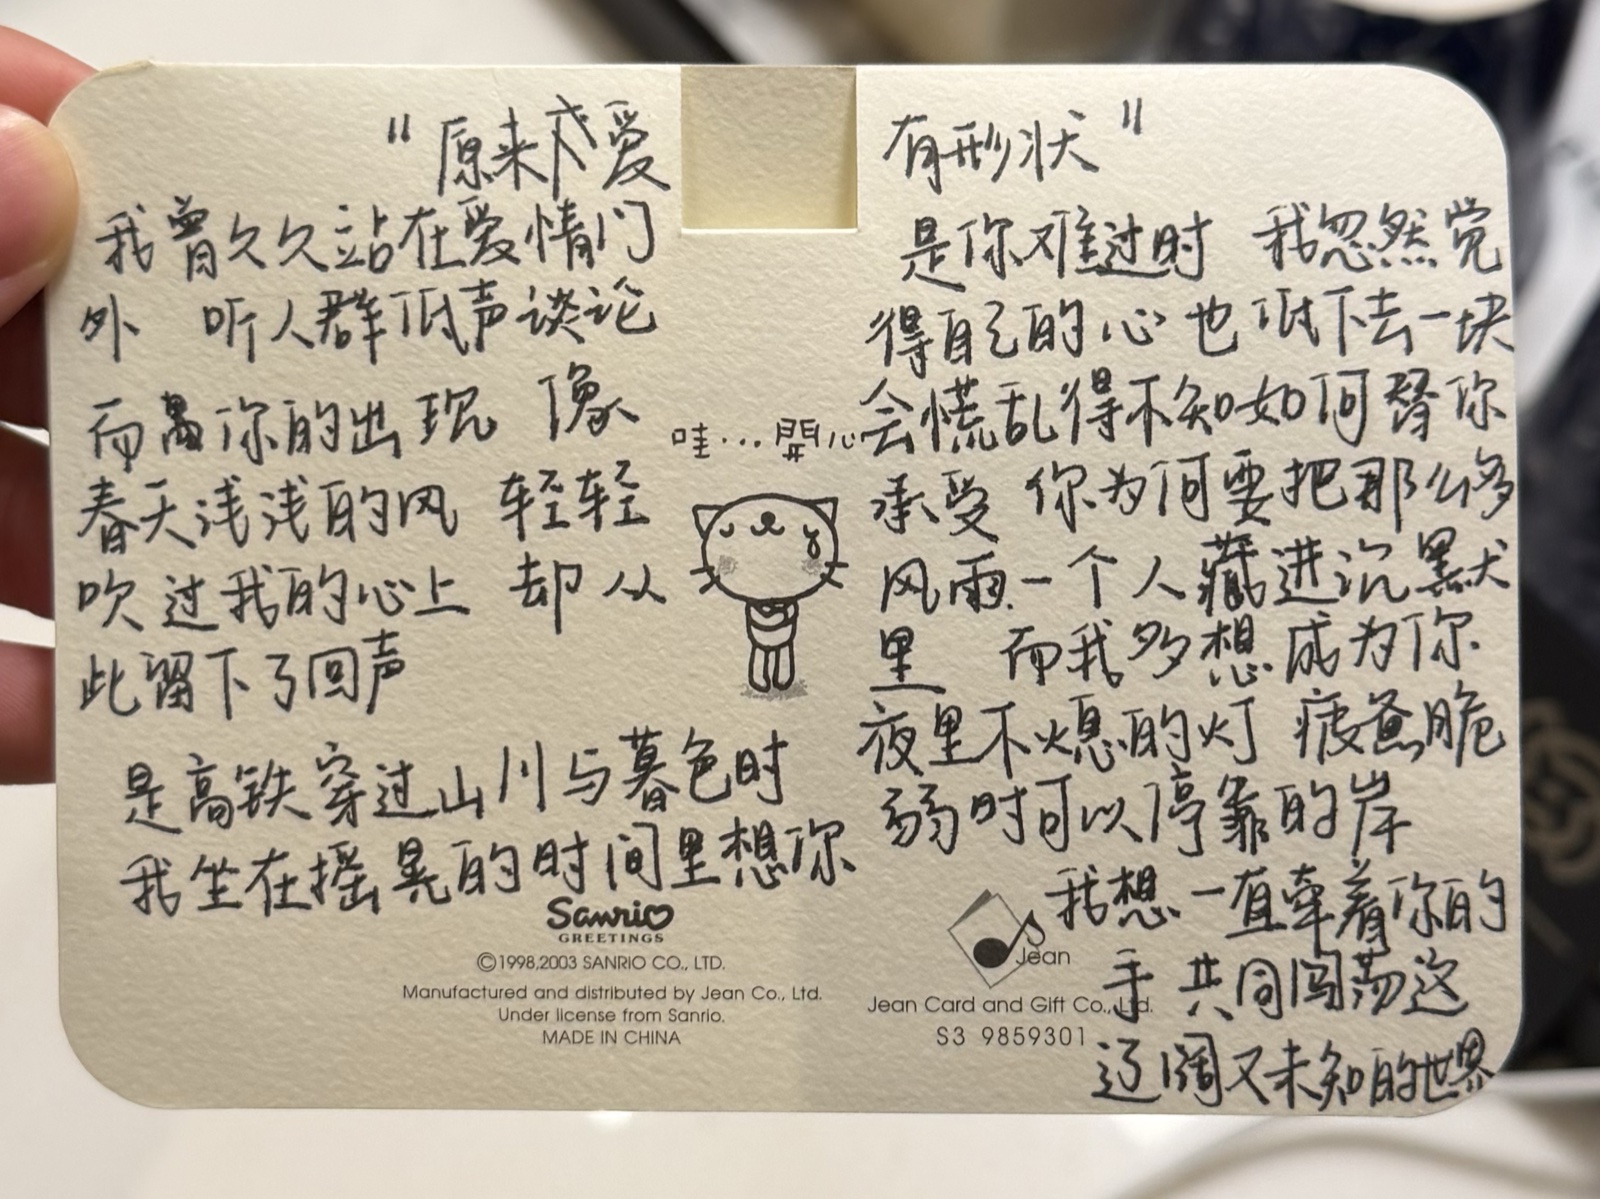 “原来成爱
我曾久久站在爱情门
外 听人群低声谈论
而离你的出现 像
春天浅浅的风 轻轻
吹过我的心上 却从
此留下了回声
是高铁穿过山川与暮色时
我坐在摇晃的时间里想你
哇…開心
Sanrio
GREETINGS
©1998,2003 SANRIO CO., LTD.
Manufactured and distributed by Jean Co., Ltd.
Under license from Sanrio.
MADE IN CHINA
有形状”
是你难过时 我忽然觉
得自己的心也低下去一块
会慌乱得不知如何替你
承受 你为何要把那么多
风雨一个人藏进沉默
里 而我多想成为你
夜里不熄的灯 疲惫脆
弱时可以停靠的岸
我想一直牵着你的
手 共同闯荡这
辽阔又未知的世界
Jean
Jean Card and Gift Co., Ltd.
S3 9859301